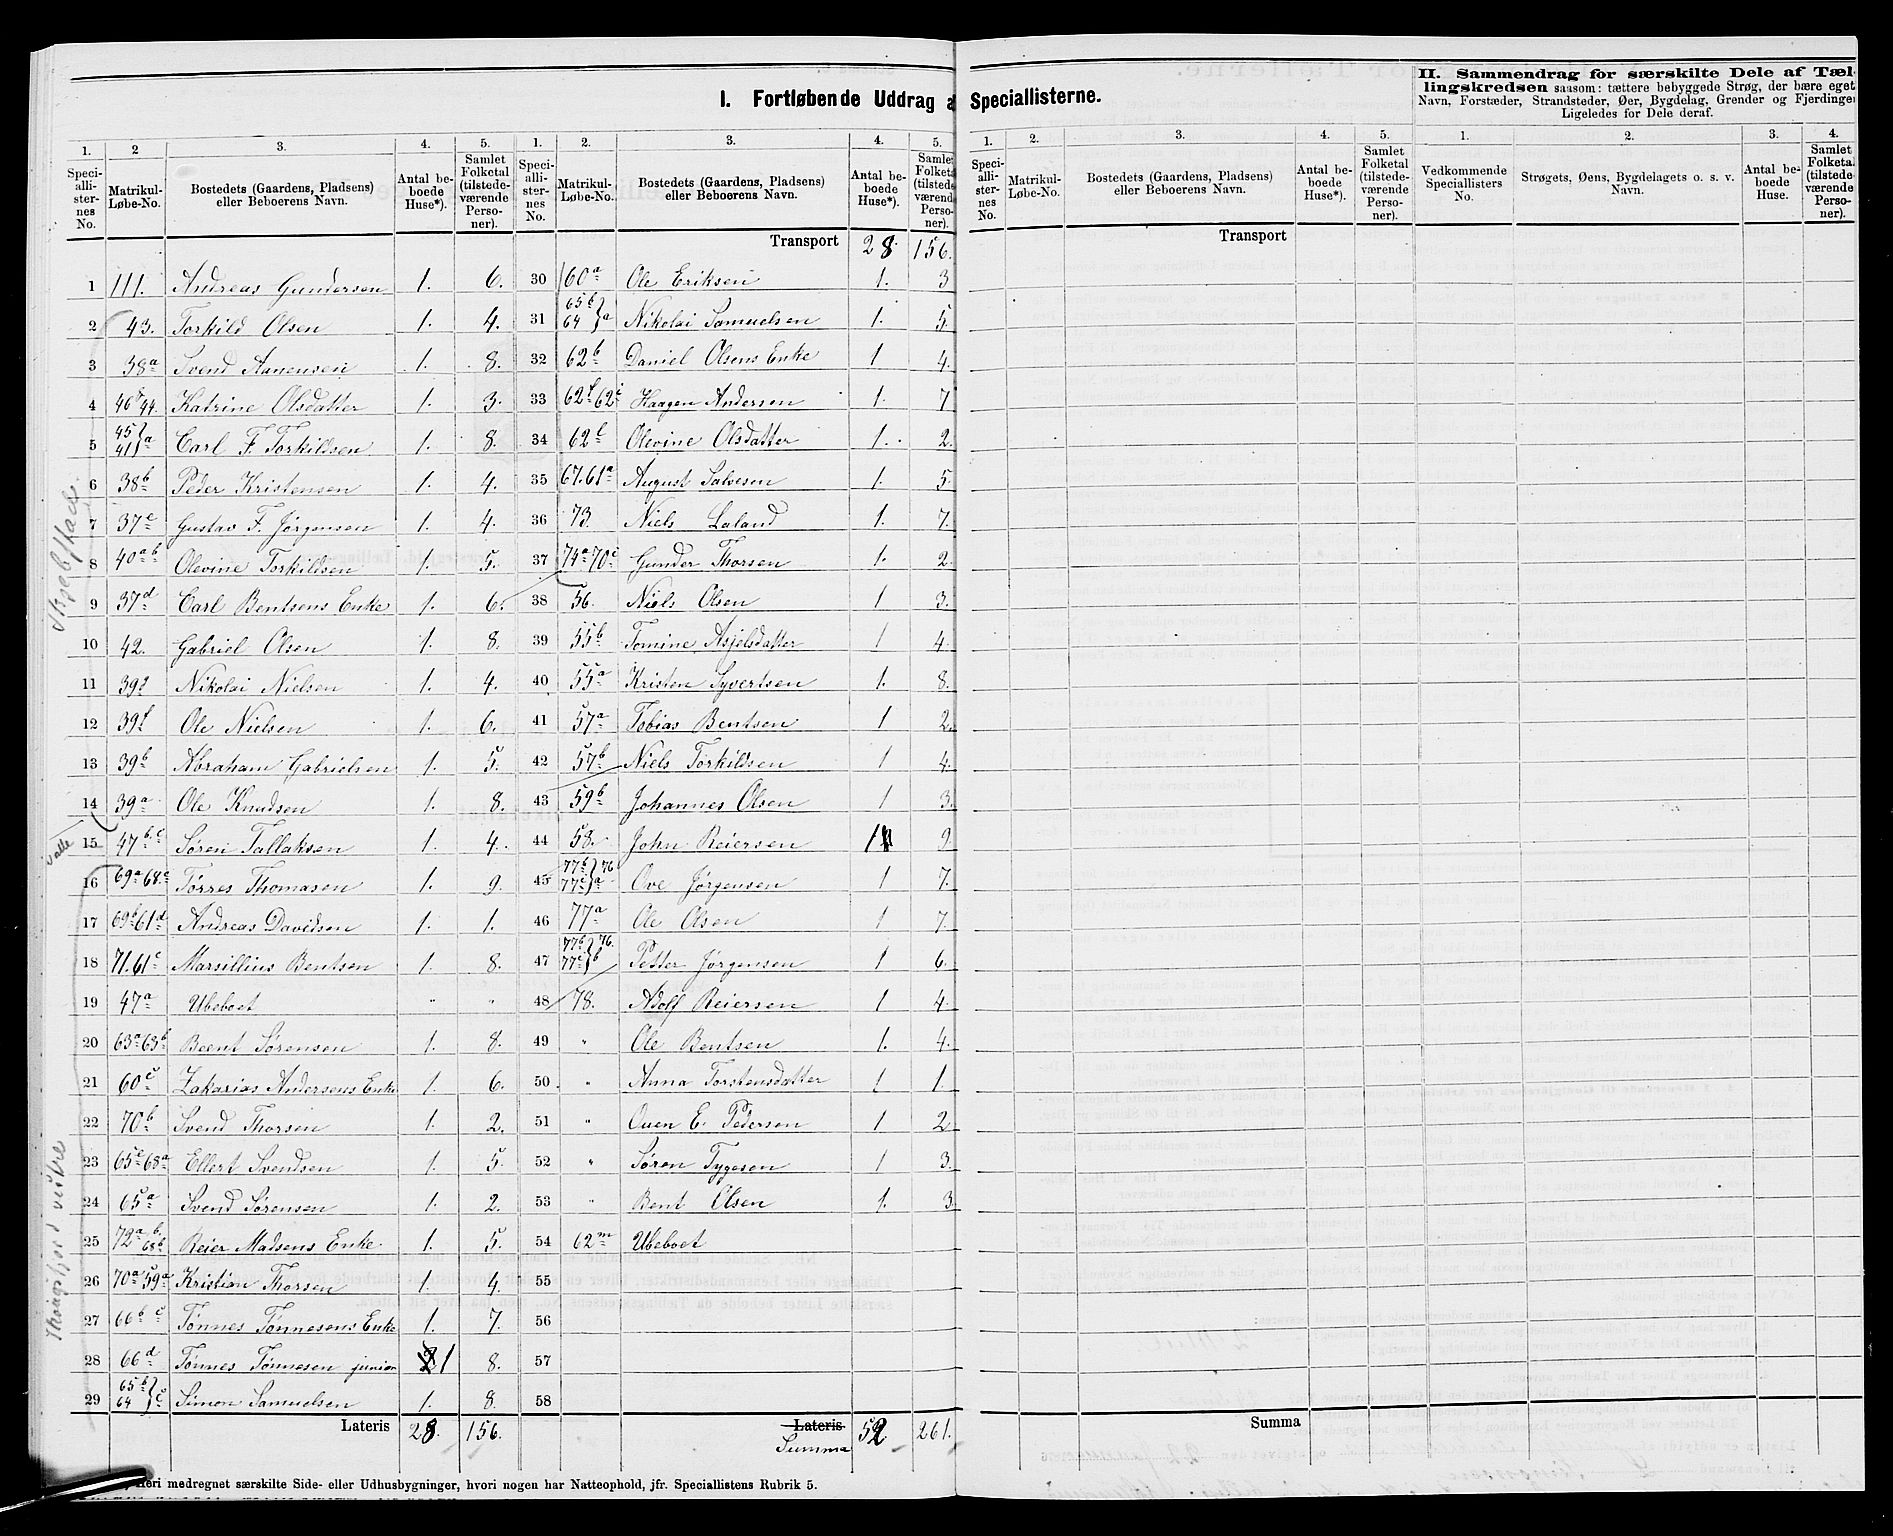 I. Fortløbende Uddrag a Speciallisterne.
II. Sammendrag for særskilte Dele af Tæl-
lingskredsen saasom: tættere bebyggede Strøg, der bære eget
Navn, Forstæder, Strandsteder, Øer, Bygdelag, Grender og Fjerdinger
Ligeledes for Dele deraf.
1. 2 3. 4. 5. 1. 2. 3. 4. 5. 1. 2. 3. 4. 5. 1. 2. 3. 4.
Speciallisternes No. Matrikul-Løbe-No. Bostedets (Gaardens, Pladsens) eller Beboerens Navn. Antal beboede Huse*). Samlet Folketal (tilstedeværende Personer).
Speciallisternes No. Matrikul-Løbe-No. Bostedets (Gaardens, Pladsens) eller Beboerens Navn. Antal beboede Huse*). Samlet Folketal (tilstedeværende Personer).
Speciallisternes No. Matrikul-Løbe-No. Bostedets (Gaardens, Pladsens) eller Beboerens Navn. Antal beboede Huse*). Samlet Folketal (tilstedeværende Personer).
Vedkommende Speciallisters No. Strøgets, Øens, Bygdelagets o. s. v. Navn. Antal beboede Huse. Samlet Folketal (tilstedeværende Personer).
Transport 28. 156.
Transport
1 111. Andreas Gundersen 1. 6.
2 43. Torkild Olsen 1. 4.
3 38a Svend Aanensen 1. 8.
4 46b 44. Katrine Olsdatter 1. 3.
5 45 41 } a Carl F. Torkildsen 1. 8.
6 38b Peder Kristensen 1. 4.
7 37c Gustav F. Jørgensen 1. 4.
8 40a b Olevine Torkildsen 1. 5.
9 37d Carl Bentsens Enke 1. 6.
10 42. Gabriel Olsen 1. 8.
11 39 Nikolai Nielsen 1. 4.
12 39f Ole Nielsen 1. 6.
13 39b Abraham Gabrielsen 1. 5.
14 39a Ole Knudsen 1. 8.
15 47b c Søren Tallaksen 1. 4.
16 69a 68c Tørres Thomasen 1. 9.
17 69b 61d Andreas Davidsen 1. 1.
18 71. 61c Marsillius Bentsen 1. 8.
19 47a Ubeboet " "
20 63a 63b Beent Sørensen 1. 8.
21 60c Zakarias Andersens Enke 1. 6.
22 70b Svend Thorsen 1. 2.
23 65c 68a Ellert Svendsen 1. 5.
24 65a Svend Sørensen 1. 2.
25 72a b 68b Reier Madsens Enke 1. 5.
26 70a 59a Kristian Thorsen 1. 4.
27 66b c Tønnes Tønnesens Enke 1. 7.
28 66d Tønnes Tønnesen junior 2 1 8.
29 65b 64 } c Simon Samuelsen 1. 8.
Lateris 28. 156.
30 60a Ole Eriksen 1. 3
31 65b 64 } a Nikolai Samuelsen 1. 5.
32 62b Daniel Olsens Enke 1 4.
33 62f 62i Haagen Andersen 1. 7
34 62l Olevine Olsdatter 1. 2.
35 67. 61a August Salvesen 1. 5.
36 73. Niels Laland 1. 7.
37 74a 70c Gunder Thorsen 1. 2.
38 56. Niels Olsen 1 3.
39 55b Tomine Asjelsdatter 1 4.
40 55a Kristen Syvertsen 1. 8.
41 57a Tobias Bentsen 1 2.
42 57b Niels Torkildsen 1 4.
43 59b Johannes Olsen 1 3.
44 58. John Reiersen 1 9.
45 77b 77c } 76 a Ove Jørgensen 1 7.
46 77a Ole Olsen 1 7.
47 77b 77c } 76. b Petter Jørgensen 1 6.
48 78. Adolf Reiersen 1 4.
49 " Ole Bentsen 1. 4.
50 " Anna Torstensdatter 1 1.
51 " Ouen E. Pedersen 1 2
52 " Søren Tygesen 1 3.
53 " Bent Olsen 1. 3
54 62m Ubeboet
55
56
57
58
Lateris
Summa 52 261.
Summa
Valle
Thorsfjord vestre
Heri medregnet særskilte Side- eller Udhusbygninger, hvori nogen har Natteophold, jfr. Speciallistens Rubrik 5.